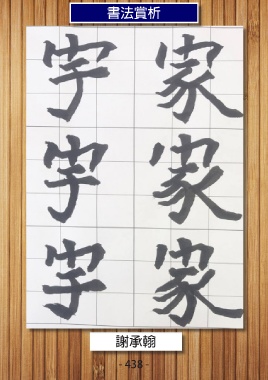 書法賞析
家
家
家
宇
宇
字
謝承翰
- 438 -